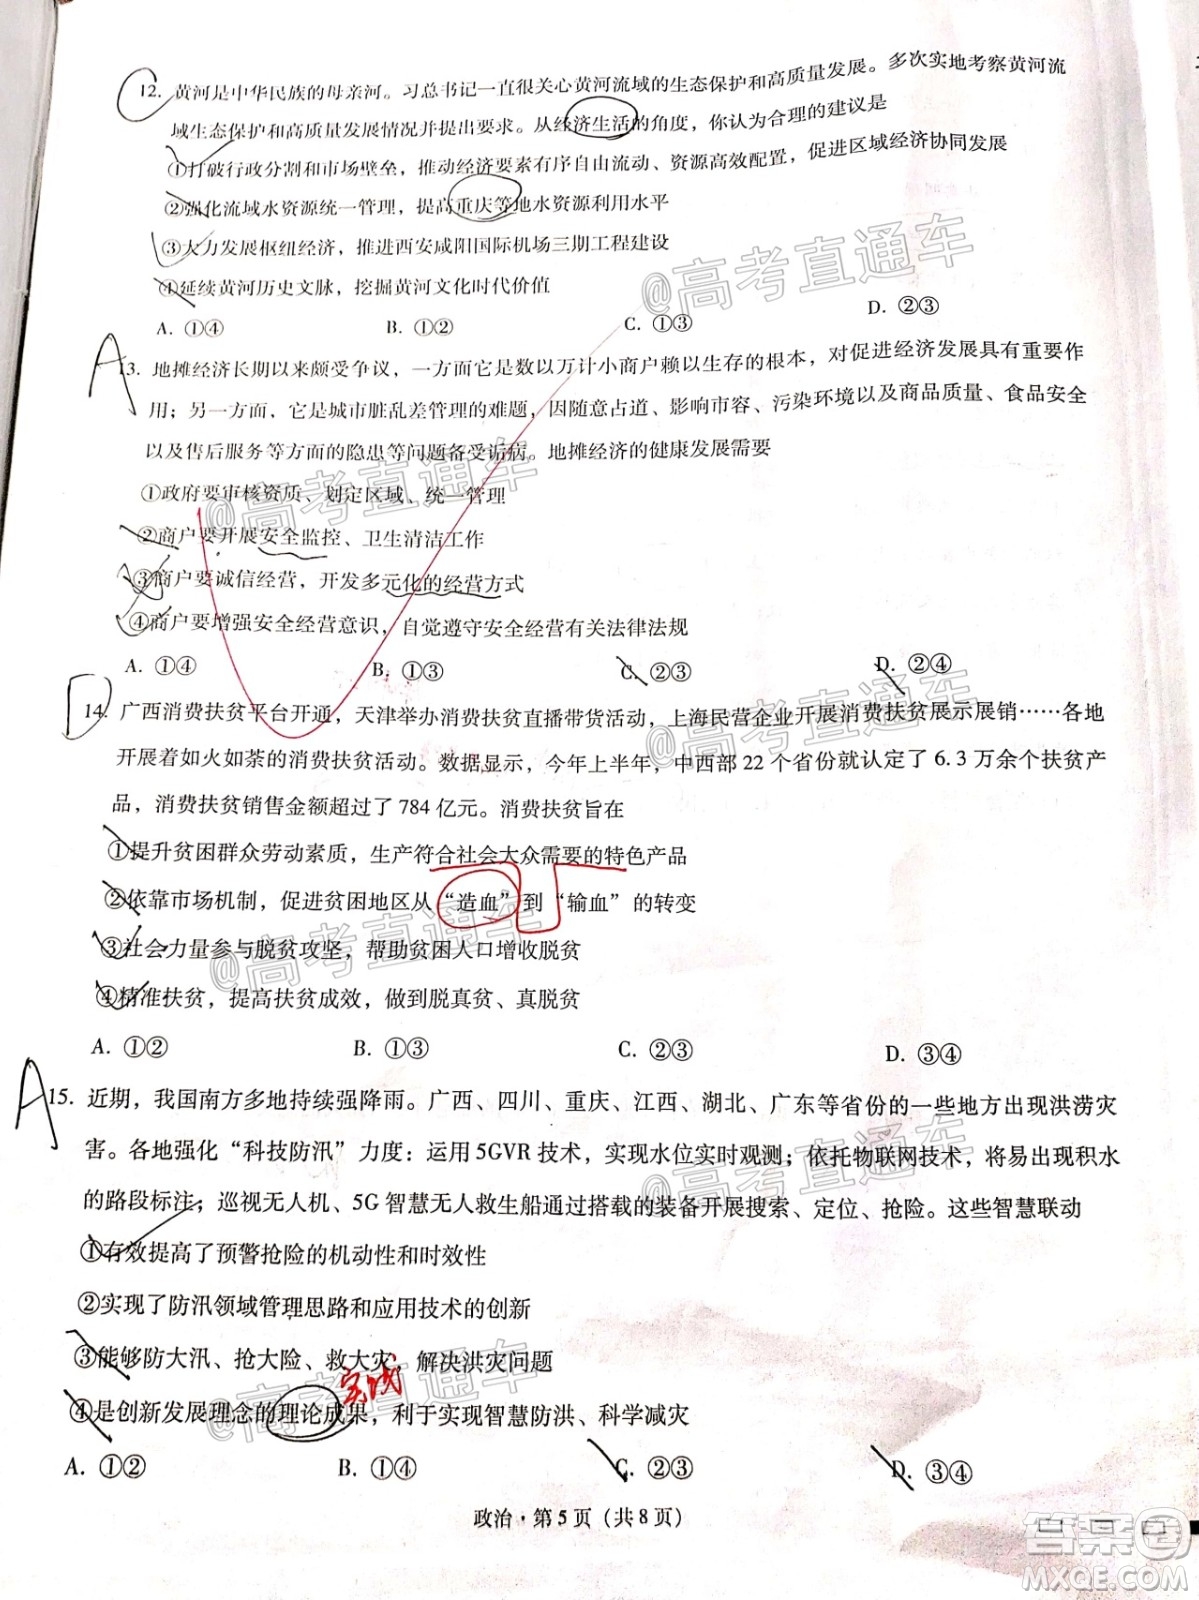 12. 黄河是中华民族的母亲河。习总书记一直很关心黄河流域的生态保护和高质量发展。多次实地考察黄河流
域生态保护和高质量发展情况并提出要求。从经济生活的角度，你认为合理的建议是
①打破行政分割和市场壁垒，推动经济要素有序自由流动、资源高效配置，促进区域经济协同发展
②强化流域水资源统一管理，提高重庆等地水资源利用水平
③大力发展枢纽经济，推进西安咸阳国际机场三期工程建设
④延续黄河历史文脉，挖掘黄河文化时代价值
A. ①④ B. ①② C. ①③ D. ②③
A
13. 地摊经济长期以来颇受争议，一方面它是数以万计小商户赖以生存的根本，对促进经济发展具有重要作
用；另一方面，它是城市脏乱差管理的难题，因随意占道、影响市容、污染环境以及商品质量、食品安全
以及售后服务等方面的隐患等问题备受诟病。地摊经济的健康发展需要
①政府要审核资质、划定区域、统一管理
②商户要开展安全监控、卫生清洁工作
③商户要诚信经营，开发多元化的经营方式
④商户要增强安全经营意识，自觉遵守安全经营有关法律法规
A. ①④ B. ①③ C. ②③ D. ②④
D
14. 广西消费扶贫平台开通，天津举办消费扶贫直播带货活动，上海民营企业开展消费扶贫展示展销……各地
开展着如火如荼的消费扶贫活动。数据显示，今年上半年，中西部 22 个省份就认定了 6.3 万余个扶贫产
品，消费扶贫销售金额超过了 784 亿元。消费扶贫旨在
①提升贫困群众劳动素质，生产符合社会大众需要的特色产品
②依靠市场机制，促进贫困地区从“造血”到“输血”的转变
③社会力量参与脱贫攻坚，帮助贫困人口增收脱贫
④精准扶贫，提高扶贫成效，做到脱真贫、真脱贫
A. ①② B. ①③ C. ②③ D. ③④
A
15. 近期，我国南方多地持续强降雨。广西、四川、重庆、江西、湖北、广东等省份的一些地方出现洪涝灾
害。各地强化“科技防汛”力度：运用 5GVR 技术，实现水位实时观测；依托物联网技术，将易出现积水
的路段标注；巡视无人机、5G 智慧无人救生船通过搭载的装备开展搜索、定位、抢险。这些智慧联动
①有效提高了预警抢险的机动性和时效性
②实现了防汛领域管理思路和应用技术的创新
③能够防大汛、抢大险、救大灾，解决洪灾问题
实践
④是创新发展理念的理论成果，利于实现智慧防洪、科学减灾
A. ①② B. ①④ C. ②③ D. ③④
政治·第 5 页（共 8 页）
@高考直通车
@高考直通车
@高考直通车
@高考直通车
@高考直通车
@高考直通车
答案圈
MXQE.COM